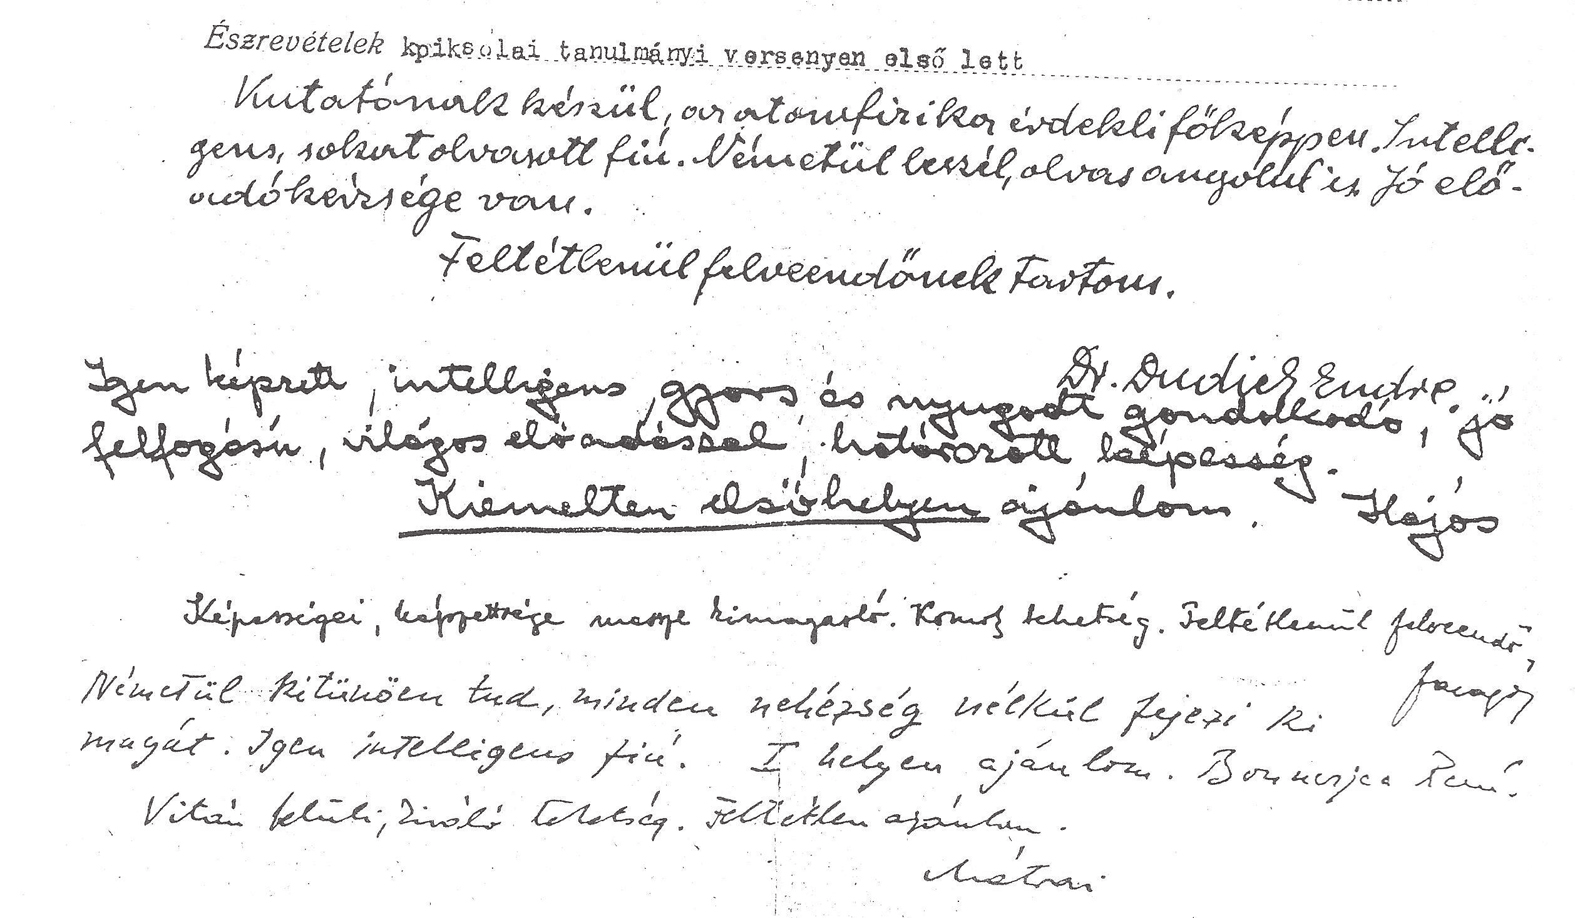 Észrevételek kpiksolai tanulmányi versenyen első lett
Kutatónak készül, az atomfizika érdekli főképpen. Intelli-
gens, sokat olvasott fiú. Németül beszél, olvas angolul is. Jó elő-
adókészsége van.
Feltétlenül felveendőnek tartom.
Dr. Dudich Endre.
Igen képzett, intelligens, gyors és nyugodt gondolkodó, jó
felfogású, világos előadással, határozott képesség.
Kiemelten első helyen ajánlom. Hajós
Képességei, képzettsége messze kimagasló. Komoly tehetség. Feltétlenül felveendő,
Faragó
Németül kitünően tud, minden nehézség nélkül fejezi ki
magát. Igen intelligens fiú. I helyen ajánlom. Bonnerjea René.
Vitán felüli, kiváló tehetség. Feltétlen ajánlom.
Mátrai